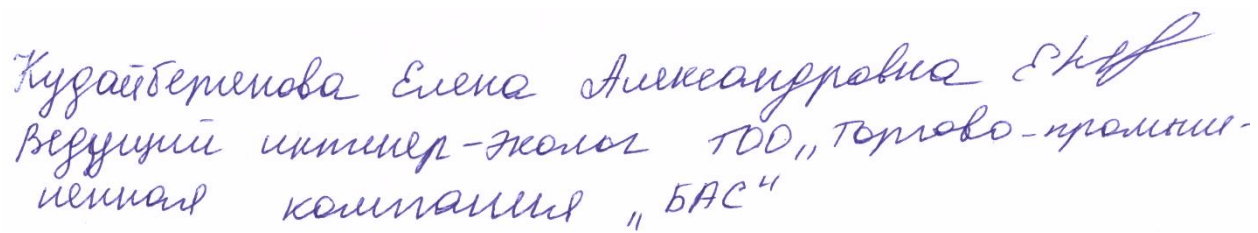 Кудайбергенова Елена Александровна
Ведущий инженер-эколог ТОО „Торгово-промыш-
ленная компания „БАС“